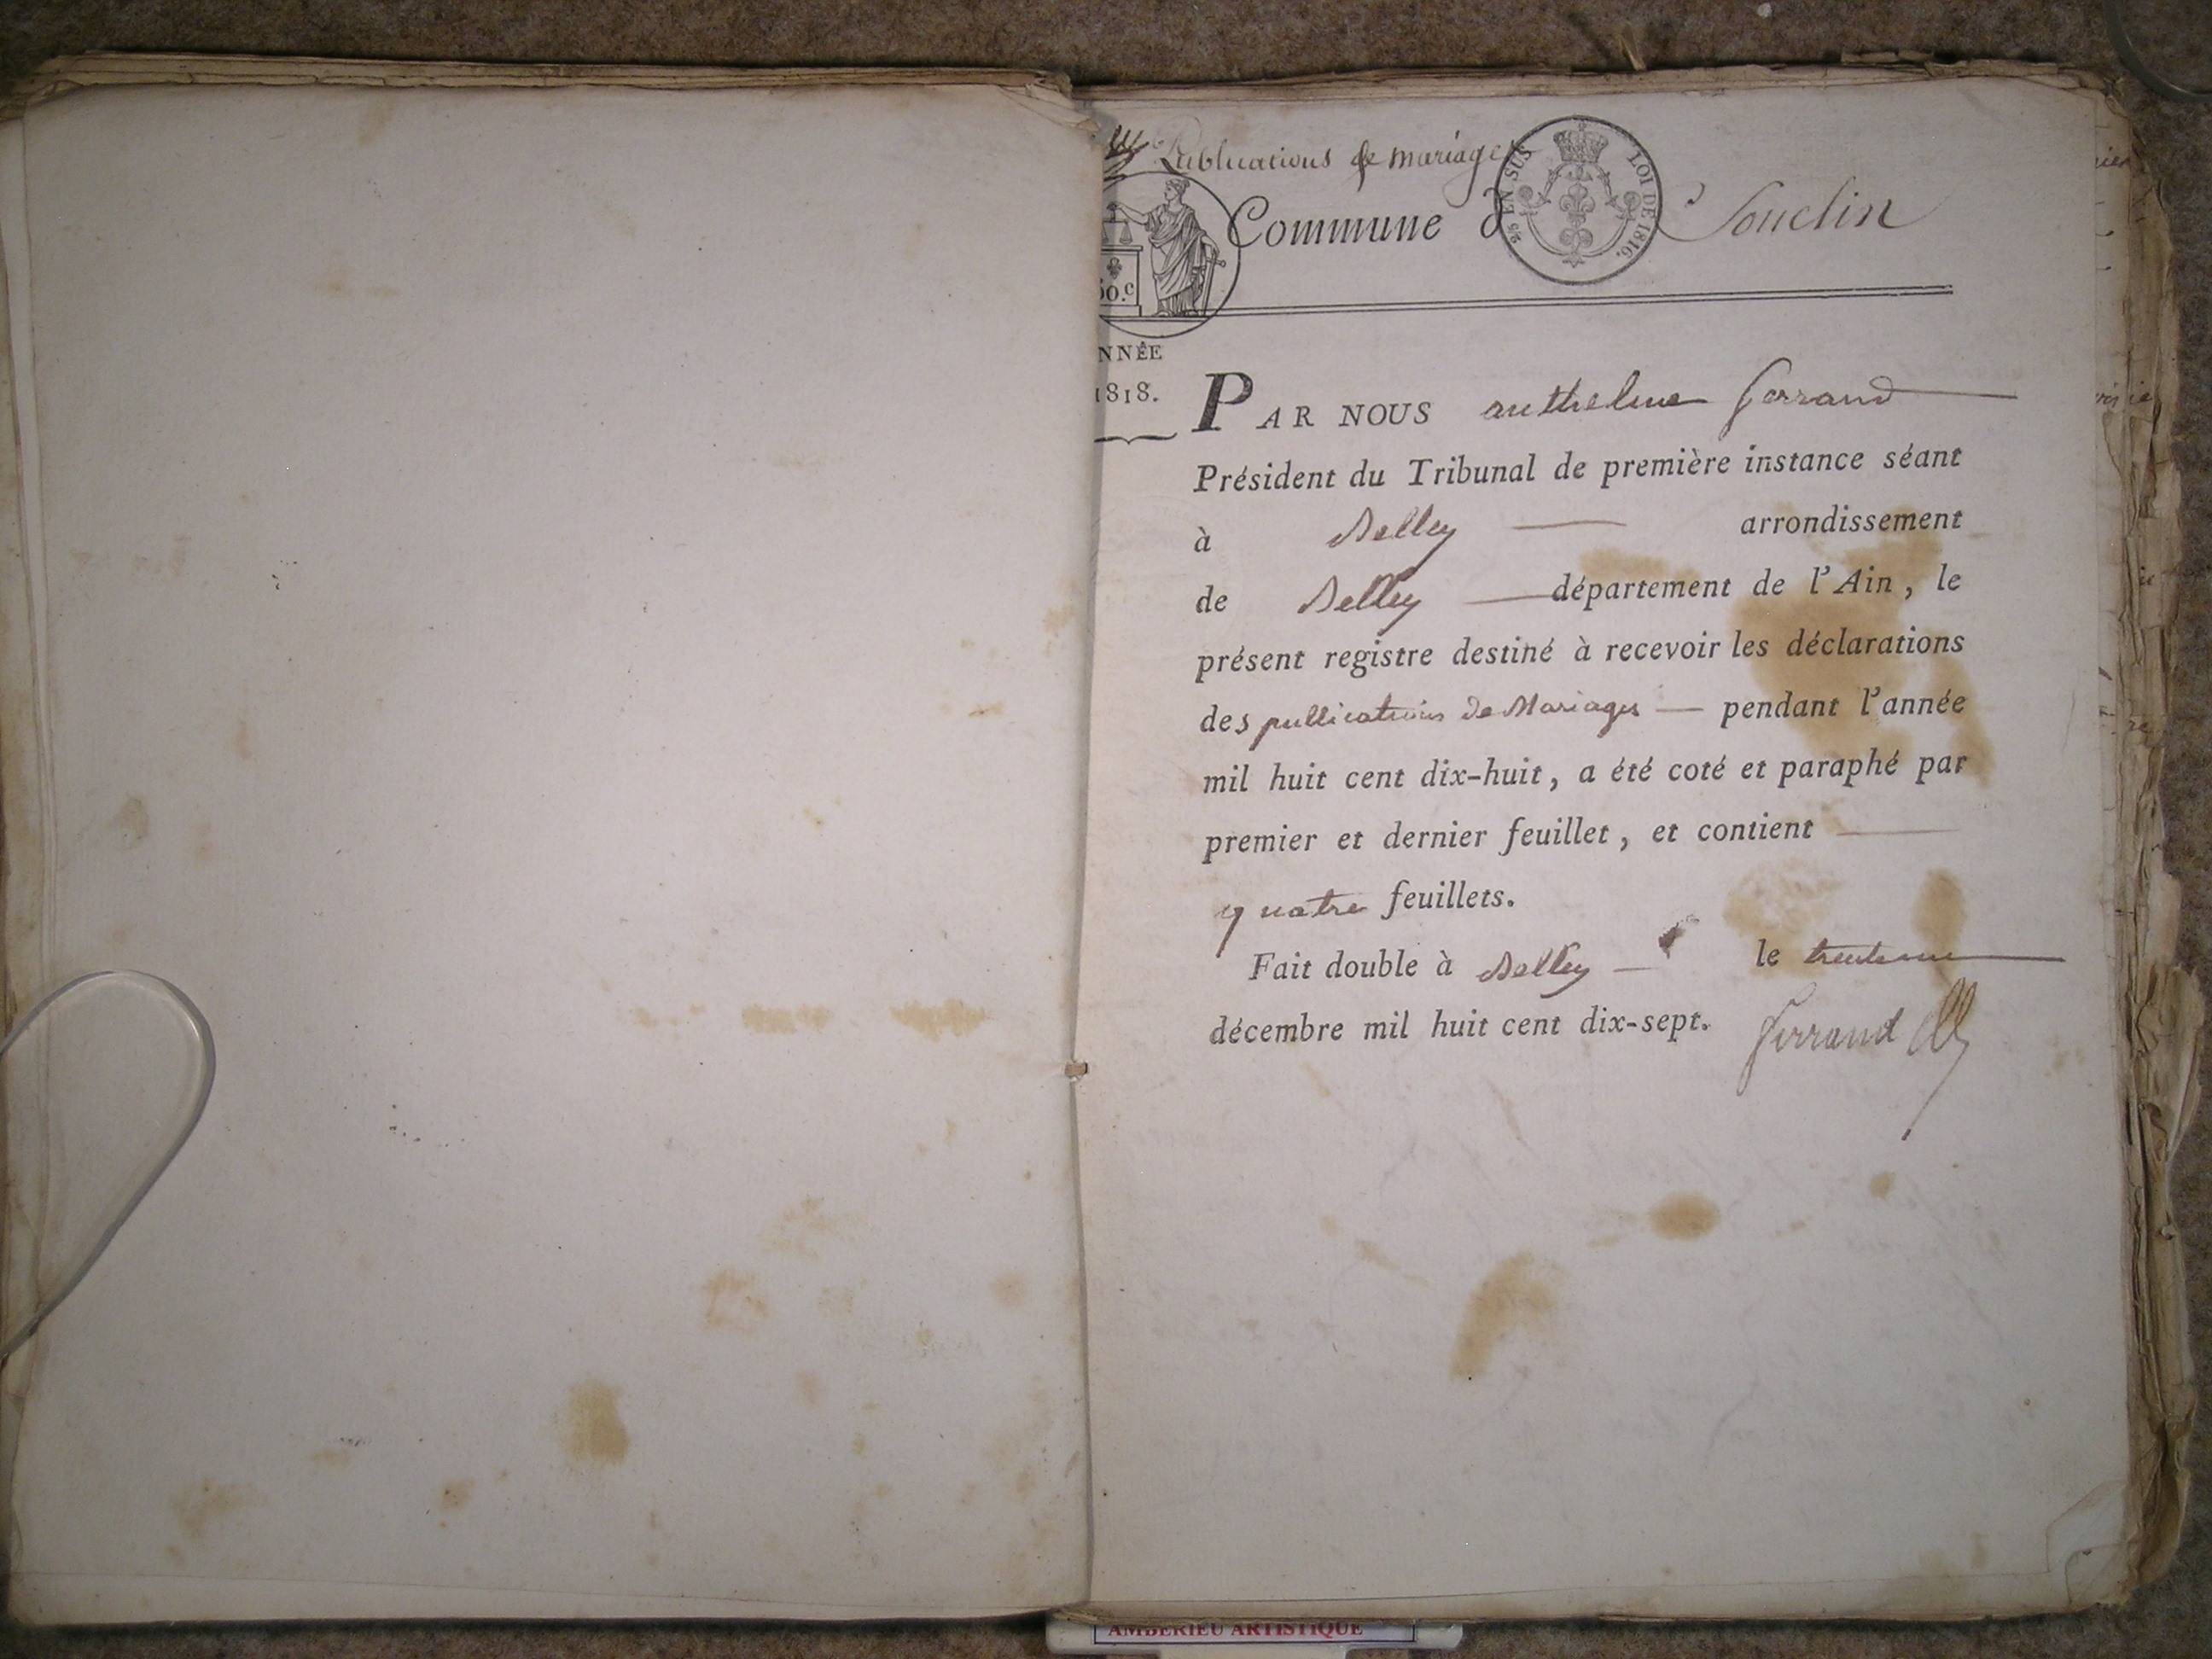 Publications de mariages
EN SUS LOI DE 1816.
Commune d Souclin
50.c
NNÉE
1818.
PAR NOUS anthelme ferrand
Président du Tribunal de première instance séant
à Belley arrondissement
de Belley département de l'Ain, le
présent registre destiné à recevoir les déclarations
des publications de Mariages pendant l'année
mil huit cent dix-huit, a été coté et paraphé par
premier et dernier feuillet, et contient
quatre feuillets.
Fait double à Belley le
décembre mil huit cent dix-sept. ferrand
AMBERIEU ARTISTIQUE